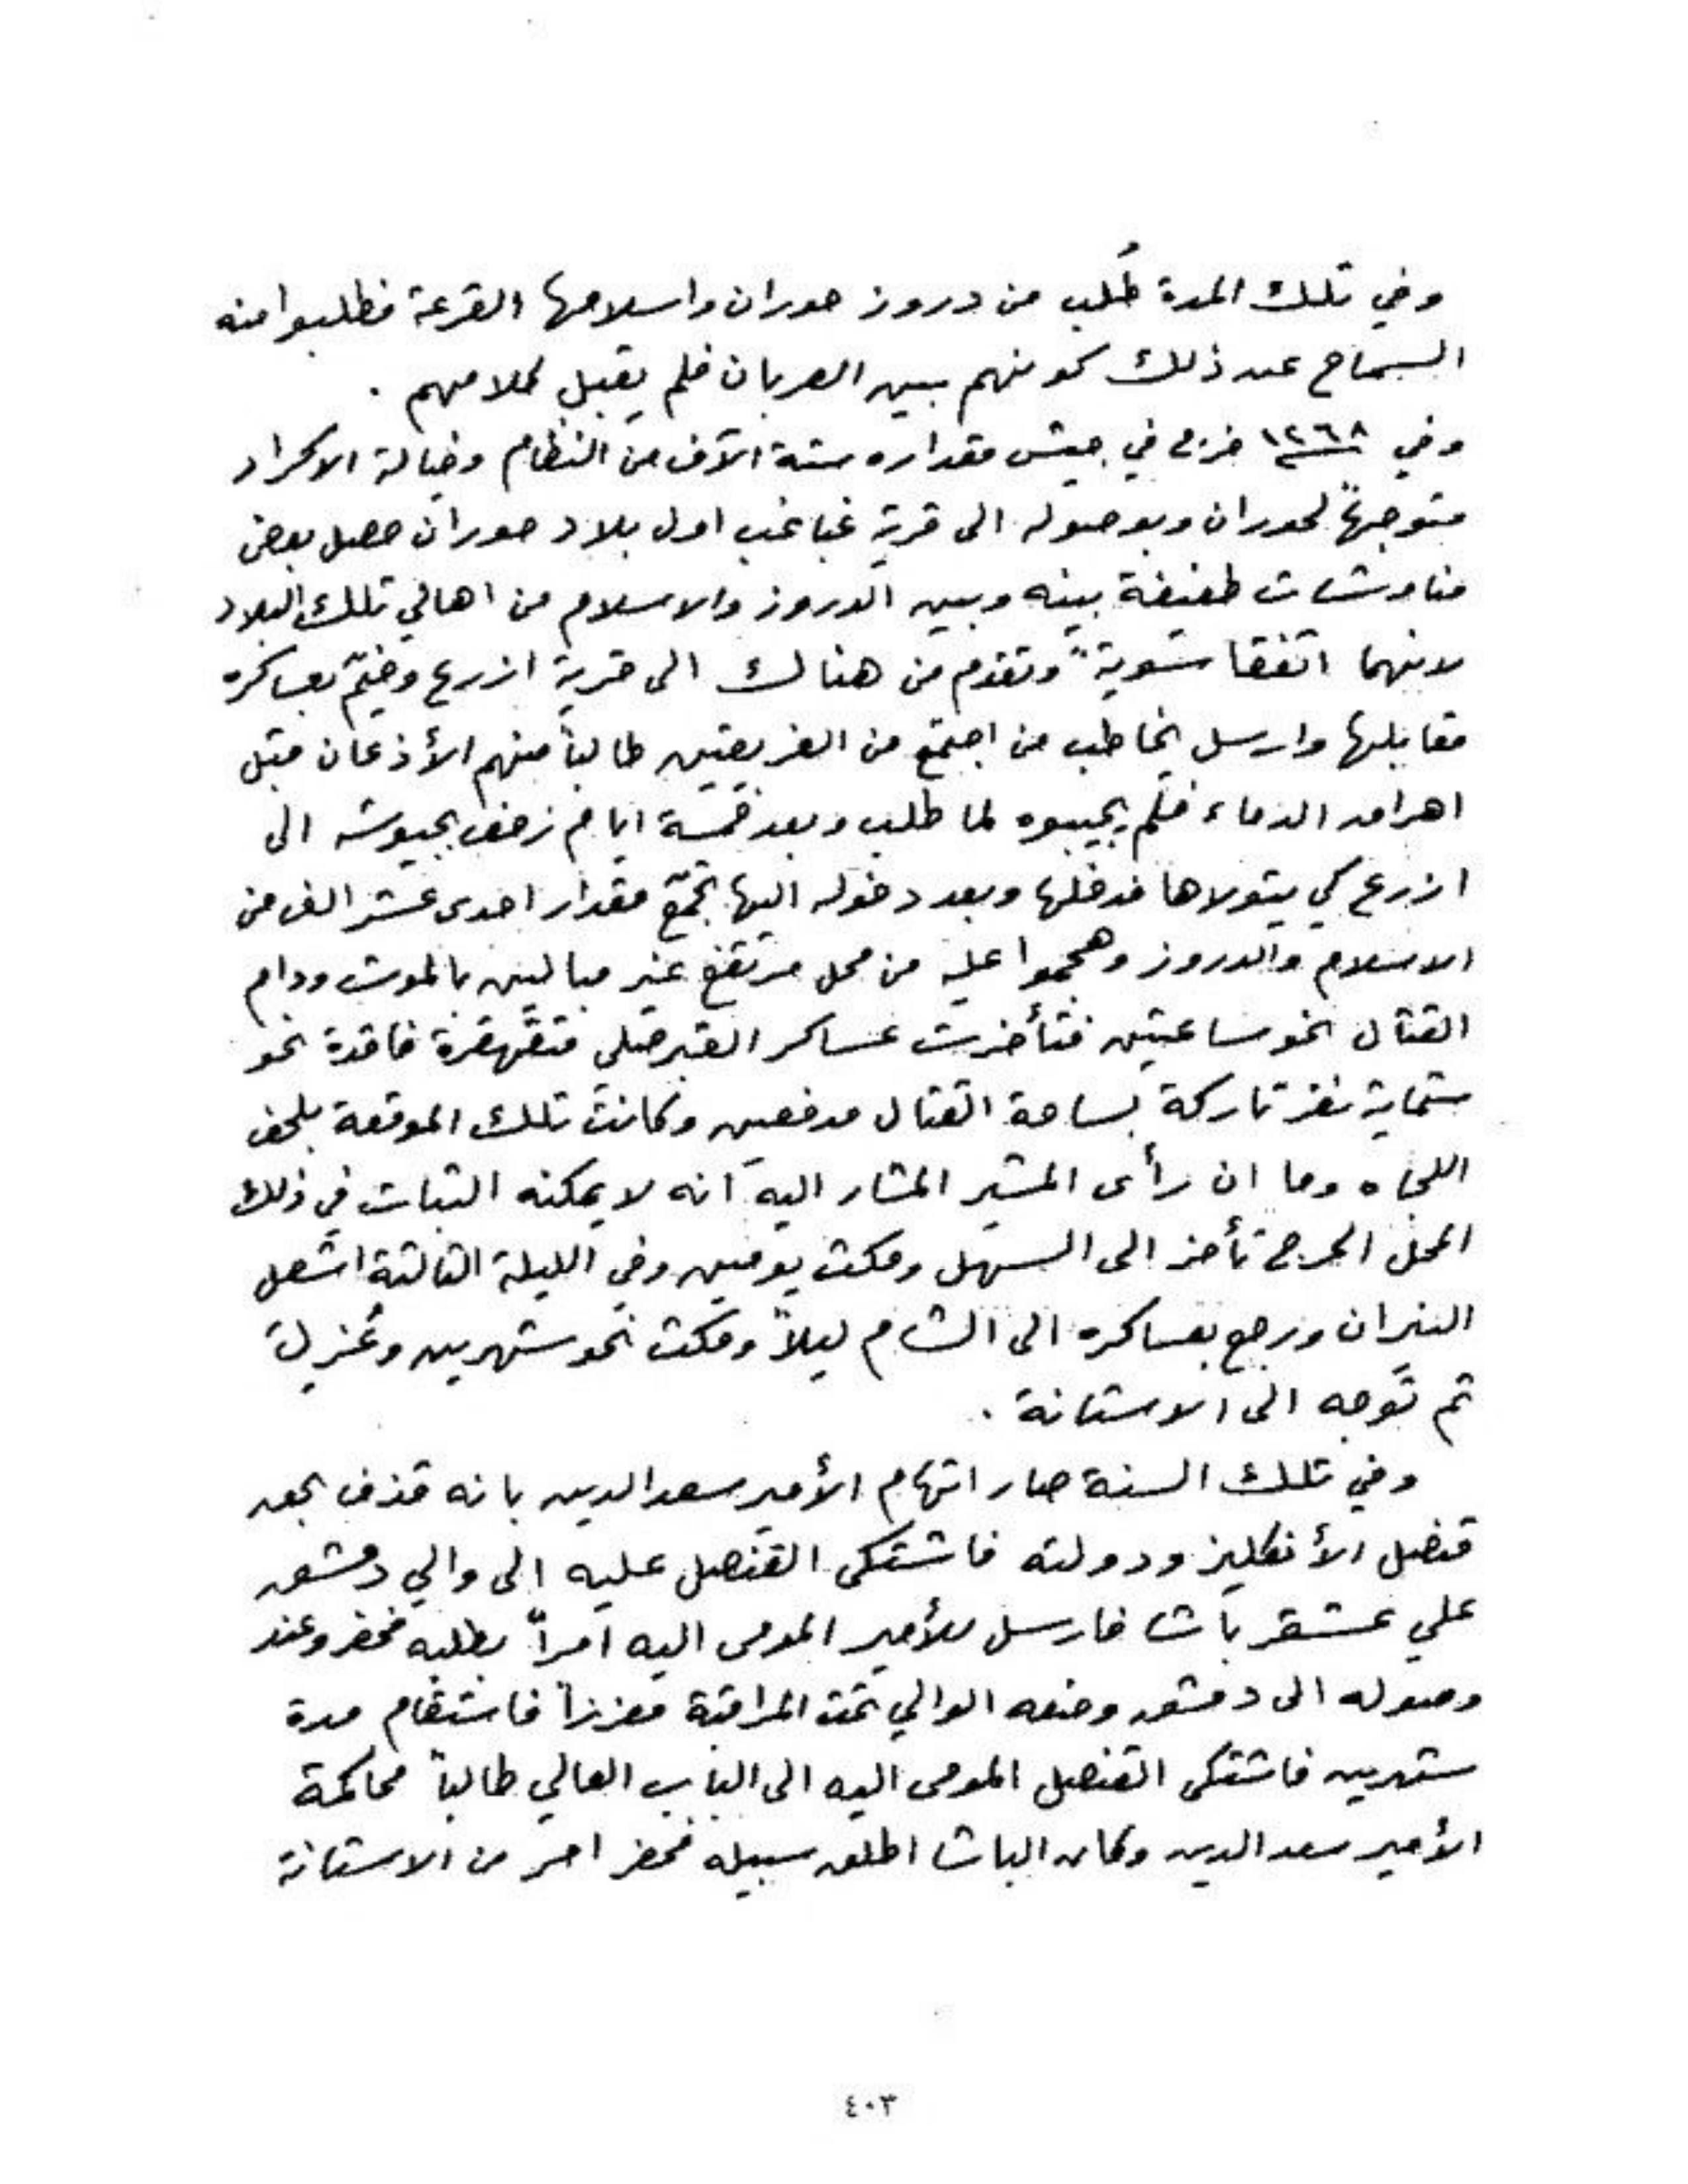 وفي تلك المدة طُلب من دروز حوران واسلامها القرعة فطلبوا منه
السماح عن ذلك كونهم بين العربان فلم يقبل كلامهم .
وفي ١٢٦٨ سنة خرج في جيش مقداره ستة آلآف من النظام وخيالة الاكراد
متوجهاً لحوران وبوصوله الى قرية غباغب اول بلاد حوران حصل بعض
مناوشات طفيفة بينه وبين الدروز والاسلام من اهالي تلك البلاد
لانهما اتفقا سوية ً وتقدم من هناك الى قرية ازرع وخيّم بعساكره
مقابلها وارسل يخاطب من اجتمع من الفريقين طالباً منهم الأذعان قبل
اهراق الدماء فلم يجيبوه لما طلب وبعد خمسة ايام زحف بجيوشه الى
ازرع كي يتولاها فدخلها وبعد دخوله اليها تجمّع مقدار احدى عشر الف من
الاسلام والدروز وهجموا عليه من محل مرتفع غير مبالين بالموت ودام
القتال نحو ساعتين فتأخرت عساكر القبرصلي متقهقرة فاقدة نحو
ستماية نفر تاركة بساحة القتال مدفعين وكانت تلك الموقعة بلحف
اللجاه وما ان رأى المشير المشار اليه انه لا يمكنه الثبات في ذلك
المحل الحرج تأخر الى السهل ومكث يومين وفي الليلة الثالثة اشعل
النيران ورجع بعساكره الى الشام ليلاً ومكث نحو شهرين وعُزل
ثم توجه الى الاستانة .
وفي تلك السنة صار اتهام الأمير سعد الدين بانه قذف بحق
قنصل الأنكليز ودولته فاشتكى القنصل عليه الى والي دمشق
علي عشقر باشا فارسل للأمير المومى اليه امراً بطلبه فحضر وعند
وصوله الى دمشق وضعه الوالي تحت المراقبة معززاً فاستقام مدة
شهرين فاشتكى القنصل المومى اليه الى الباب العالي طالباً محاكمة
الأمير سعد الدين وكان الباشا اطلق سبيله فحضر امر من الاستانة
٤٠٣